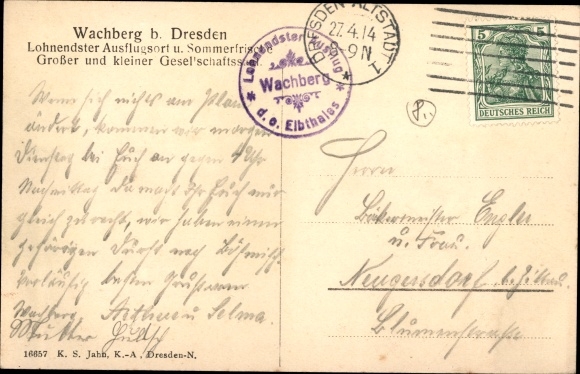 Wachberg b. Dresden
Lohnendster Ausflugsort u. Sommerfrische
Großer und kleiner Gesellschaftss
Lohnendster Ausflug
Wachberg
d. o. Elbthales
DRESDEN-ALTSTADT 1
27.4.14
8-9N
5
DEUTSCHES REICH
Wenn sich nichts am Plan
ändert, kommen wir morgen
Dienstag bei Euch an gegen 4 Uhr
Nachmittag da macht Ihr Euch nur
gleich zurecht, wir haben einen
gehörigen Durst nach Böhmisch
Vorläufig besten Gruss vom
Wachberg. u. Selma.
Mutter
Herrn
Bäckermeister Engler
u. Frau.
Neugersdorf bei Zittau.
Blumenstraße
16657 K. S. Jahn, K.-A., Dresden-N.